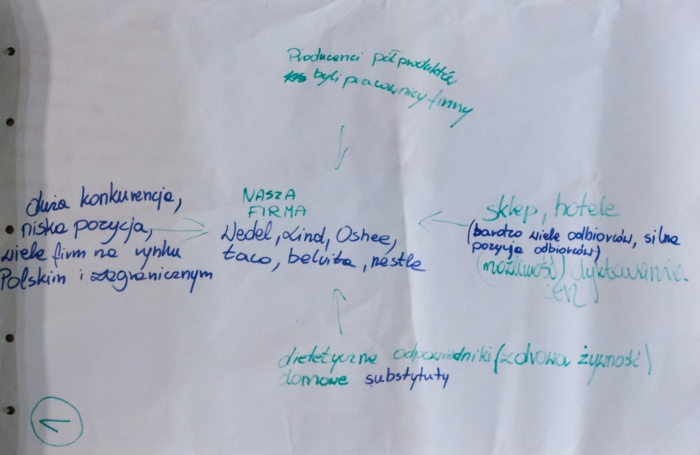 Producenci półproduktów
byli pracownicy firmy
duża konkurencja,
niska pozycja,
wiele firm na rynku
Polskim i zagranicznym
NASZA
FIRMA
Wedel, Lind, Oshee,
taco, belvita, nestle
sklep, hotele
(bardzo wiele odbiorców, silna
pozycja odbiorców)
(możliwość) dyktowania
cen
dietetyczne odpowiedniki (zdrowa żywność)
domowe substytuty
1